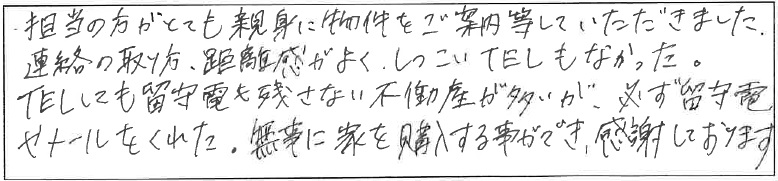 ・担当の方がとても親身に物件をご案内等していただきました。
連絡の取り方、距離感がよく、しつこいTELもなかった。
TELしても留守電も残さない不動産が多いが、必ず留守電
やメールをくれた。無事に家を購入する事ができ、感謝しております